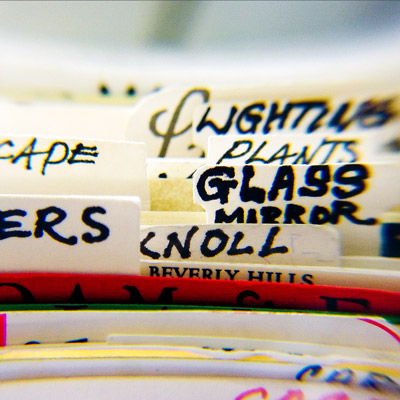 LIGHTING
PLANTS
CAPE
GLASS
MIRROR
ERS
KNOLL
BEVERLY HILLS